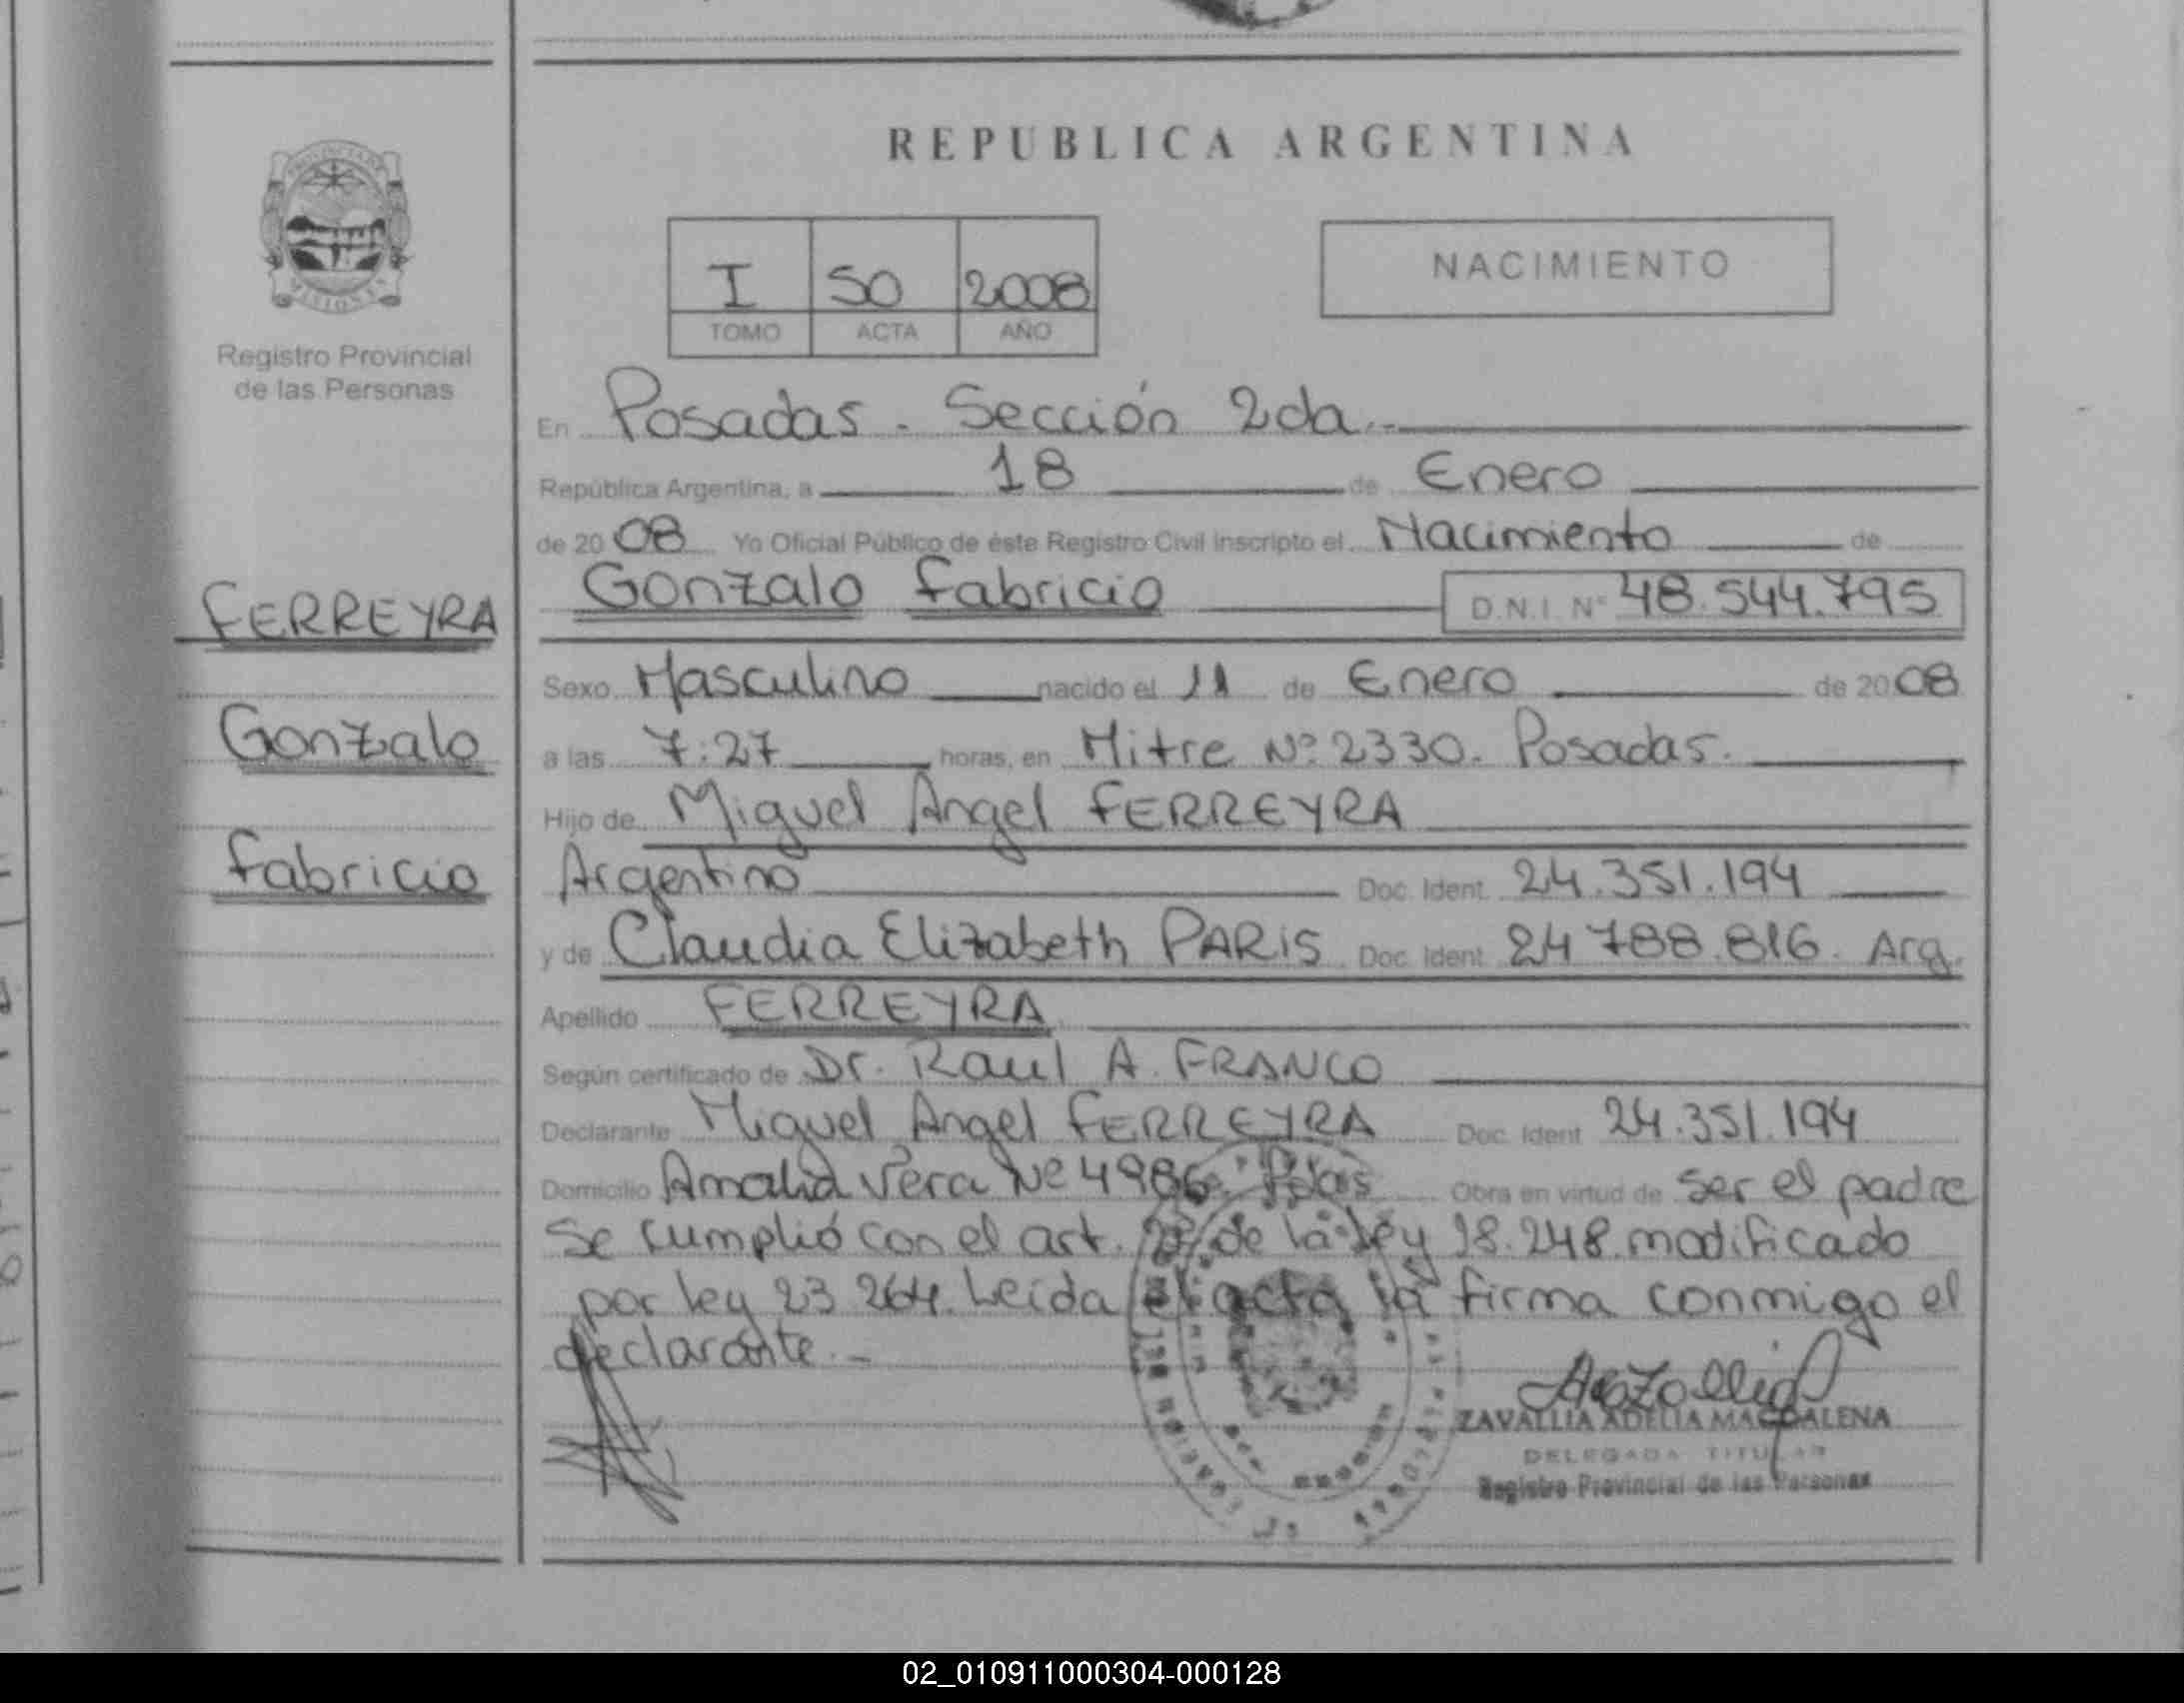 REPUBLICA ARGENTINA
PROVINCIA DE
MISIONES
Registro Provincial
de las Personas
I 50 2008
TOMO ACTA AÑO
NACIMIENTO
En Posadas. Sección 2da.
República Argentina, a 18 de Enero
de 2008 Yo Oficial Público de éste Registro Civil inscripto el Nacimiento de
Gonzalo Fabricio D.N.I. Nº 48.544.795
FERREYRA
Gonzalo
Fabricio
Sexo Masculino nacido el 11 de Enero de 2008
a las 7:27 horas, en Mitre Nº 2330. Posadas.
Hijo de Miguel Angel FERREYRA
Argentino Doc. Ident. 24.351.194
y de Claudia Elizabeth PARIS Doc. Ident. 24 788.816. Arg.
Apellido FERREYRA
Según certificado de Dr. Raul A. FRANCO
Declarante Miguel Angel FERREYRA Doc. Ident. 24.351.194
Domicilio Amalia Vera Nº Pdas Obra en virtud de ser el padre
Se cumplió con el art. de la ley 18.248 modificado
por ley 23 264. Leida el acta la firma conmigo el
declarante.-
ZAVALLIA ADELIA MAGDALENA
DELEGADA TITULAR
Registro Provincial de las Personas
02_010911000304-000128